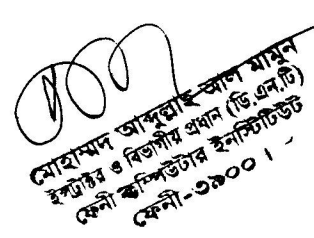 মোহাম্মদ আব্দুল্লাহ আল মামুন
ইন্সট্রাক্টর ও বিভাগীয় প্রধান (ডি.এন.টি)
ফেনী কম্পিউটার ইনস্টিটিউট
ফেনী-৩৯০০।